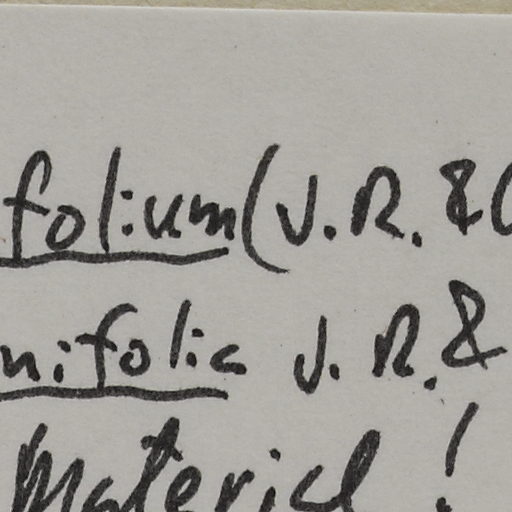 folium (J.R. & G
nifolia J.R. &
Material!